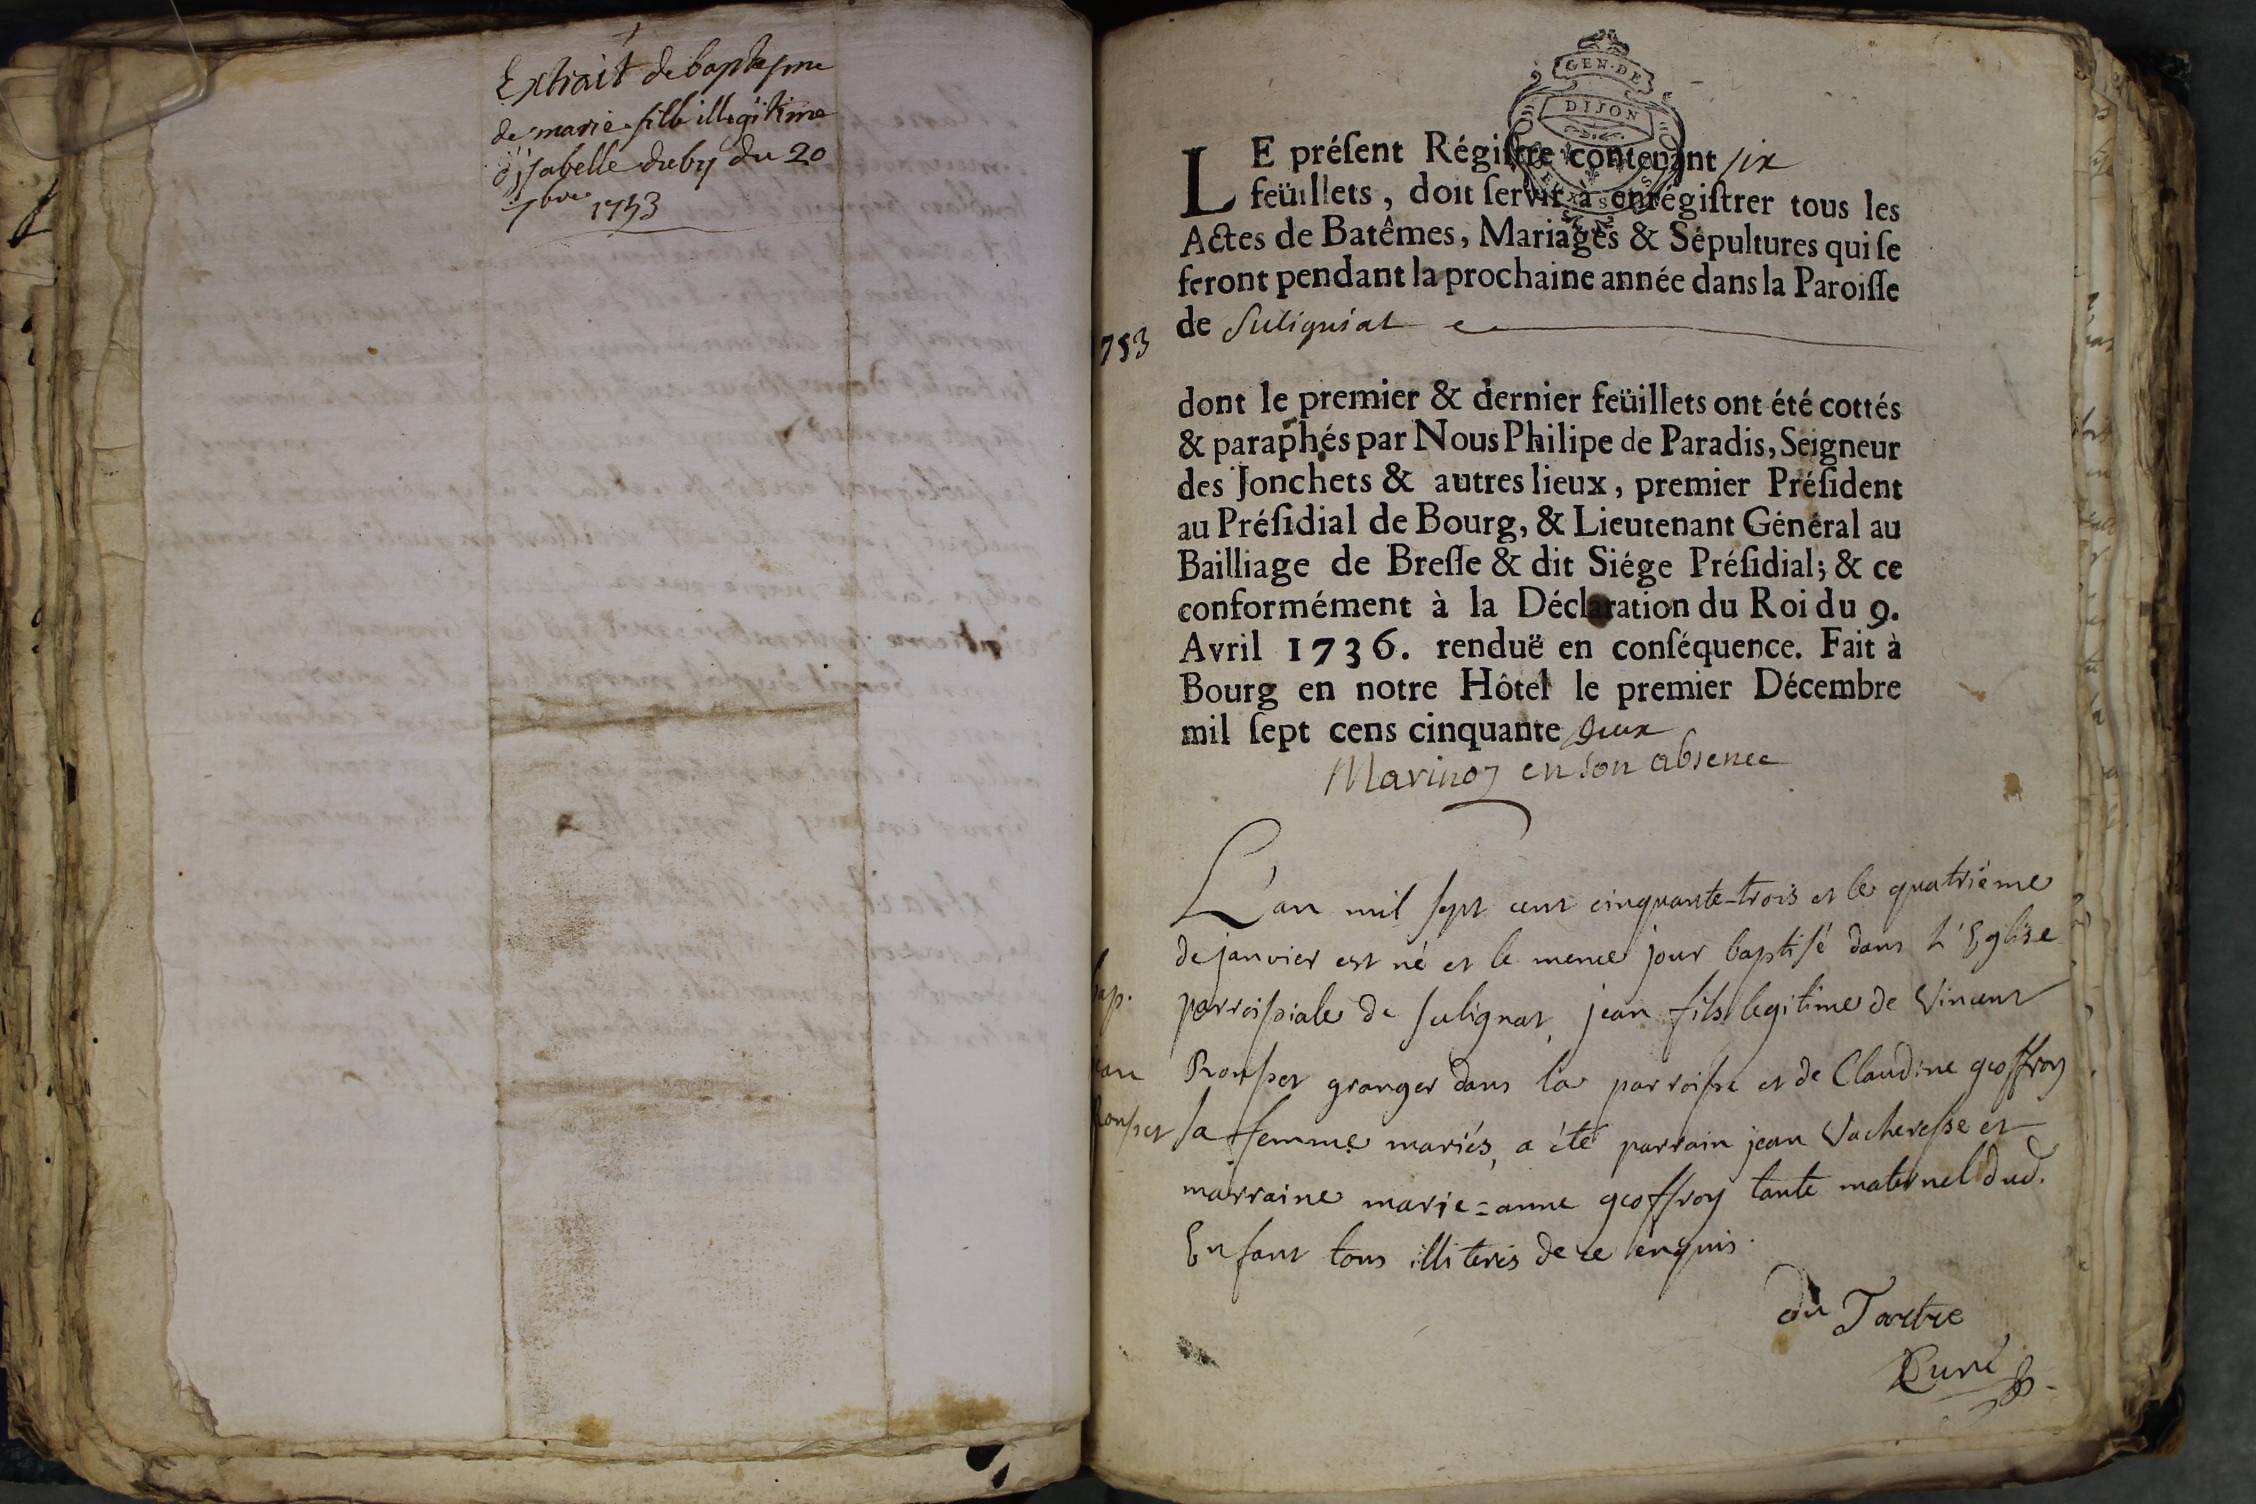 Extrait de baptesme
de marie fille illegitime
d'isabelle duby du 20
7bre 1753
GEN·DE
DIJON
LE préſent Régiſtre contenant six
feüillets, doit ſervir à enrégiſtrer tous les
Actes de Batêmes, Mariages & Sépultures qui ſe
feront pendant la prochaine année dans la Paroiſſe
de Suligniat
753
dont le premier & dernier feüillets ont été cottés
& paraphés par Nous Philipe de Paradis, Seigneur
des Jonchets & autres lieux, premier Préſident
au Préſidial de Bourg, & Lieutenant Général au
Bailliage de Breſſe & dit Siége Préſidial; & ce
conformément à la Déclaration du Roi du 9.
Avril 1736. renduë en conſéquence. Fait à
Bourg en notre Hôtel le premier Décembre
mil ſept cens cinquante deux
en son absence
L'an mil sept cent cinquante-trois et le quatriéme
de janvier est né et le meme jour baptisé dans L'Eglise
bap.
parroissiale de sulignat, jean fils legitime de Vincent
ean
Rousset granger dans la parroisse et de Claudine geoffroy
Rousset
sa femme mariés, a été parrain jean Vacheresse et
marraine marie=anne geoffroy tante maternel dud.
Enfant tous illiterés de ce enquis.
du Tartre
Curé